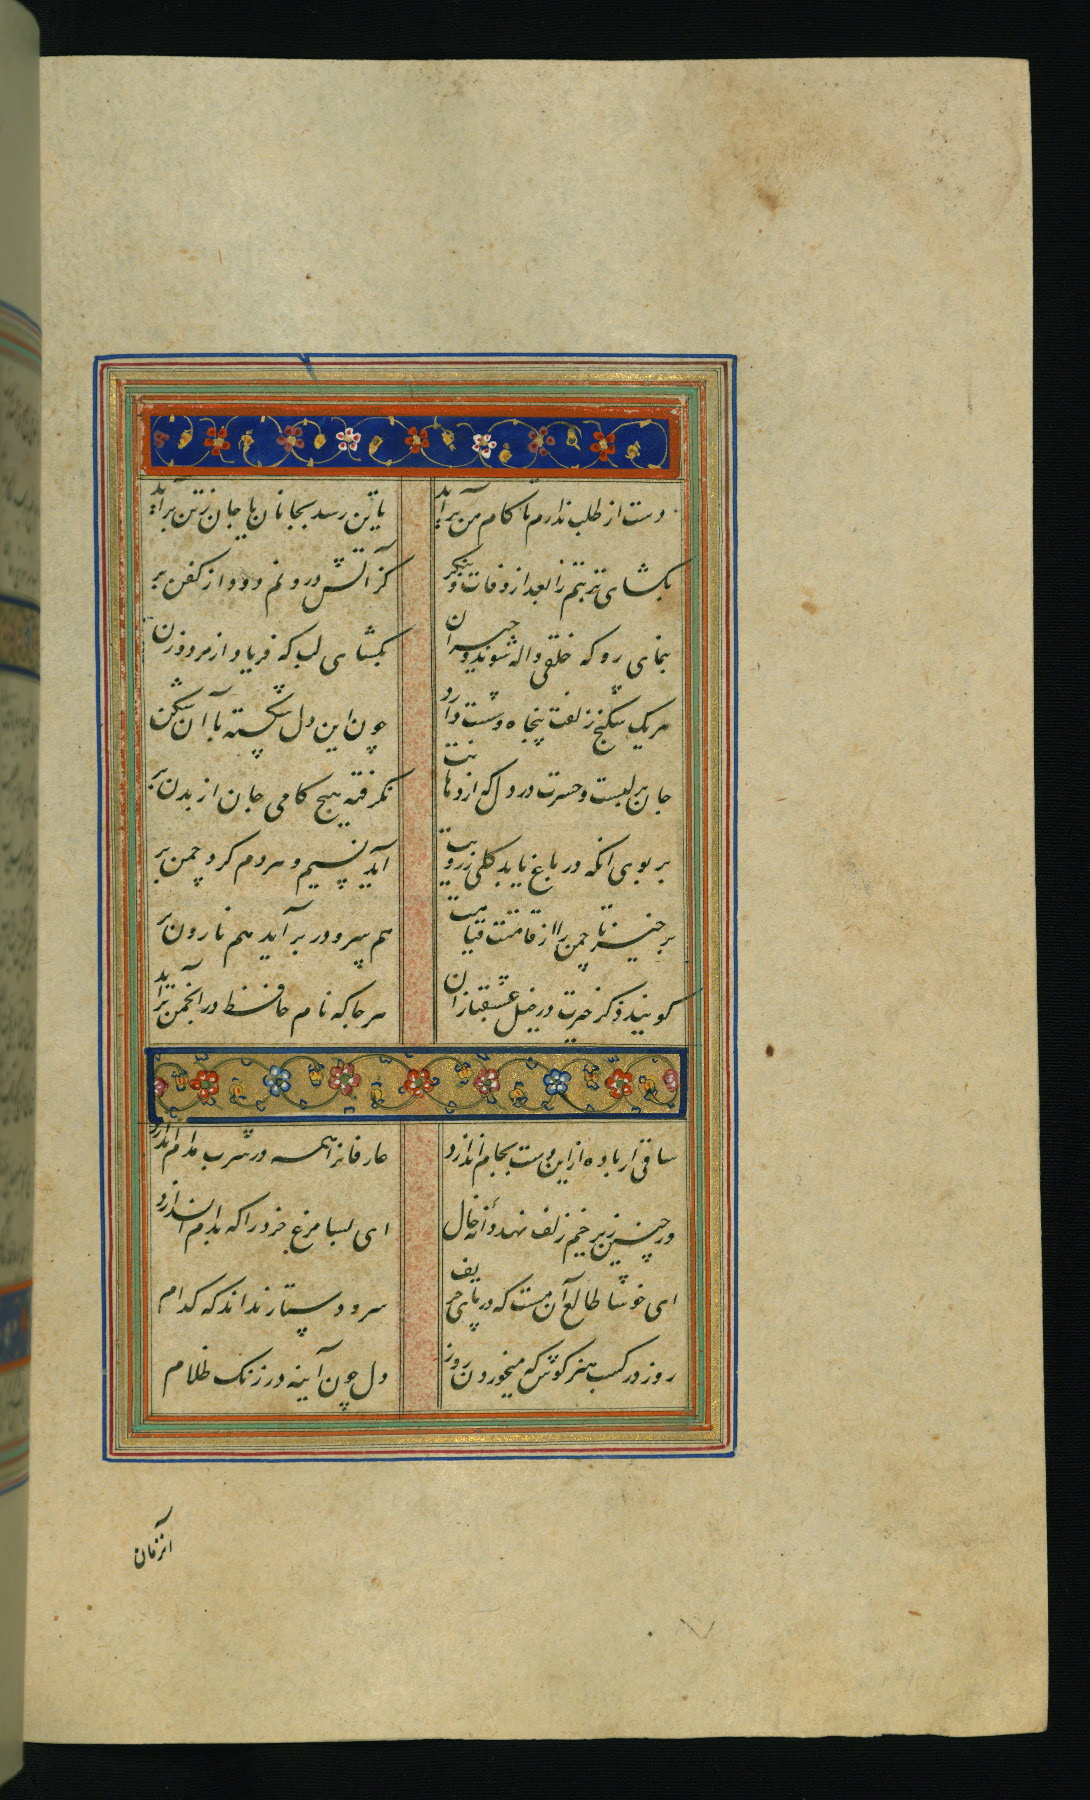 دست از طلب ندارم تا کام من برآید
یا تن رسد بجانان یا جان ز تن برآید
بگشای تربتم را بعد از وفات و بنگر
کز آتش درونم دود از کفن بر
بنمای رو که خلقی واله شوند و حیران
بگشای لب که فریاد از مرد و زن
هر یک شکنج زلفت پنجاه و شست دارد
چون این دل شکسته با آن شکن
جان بر لبست و حسرت در دل که از دهانت
نگرفته هیچ کامی جان از بدن بر
بر بوی انکه در باغ یابد گلی ز رویت
آید نسیم و هر دم گرد چمن بر
برخیز تا چمن را از قامتت قیامت
هم سرو در بر آید هم نارون بر
گویند ذکر خیرت در خیل عشقبازان
هر جا که نام حافظ در انجمن برآید
ساقی ار باده ازین دست بجام اندازد
عارفانرا همه در شرب مدام اندازد
ور چنین زیر خم زلف نهد دانه خال
ای بسا مرغ خرد را که بدام اندازد
ای خوشا طالع آن مست که در پای حریف
سر و دستار نداند که کدام
روز در کسب هنر کوش که میخوردن روز
دل چون آینه در زنگ ظلام
آنزمان